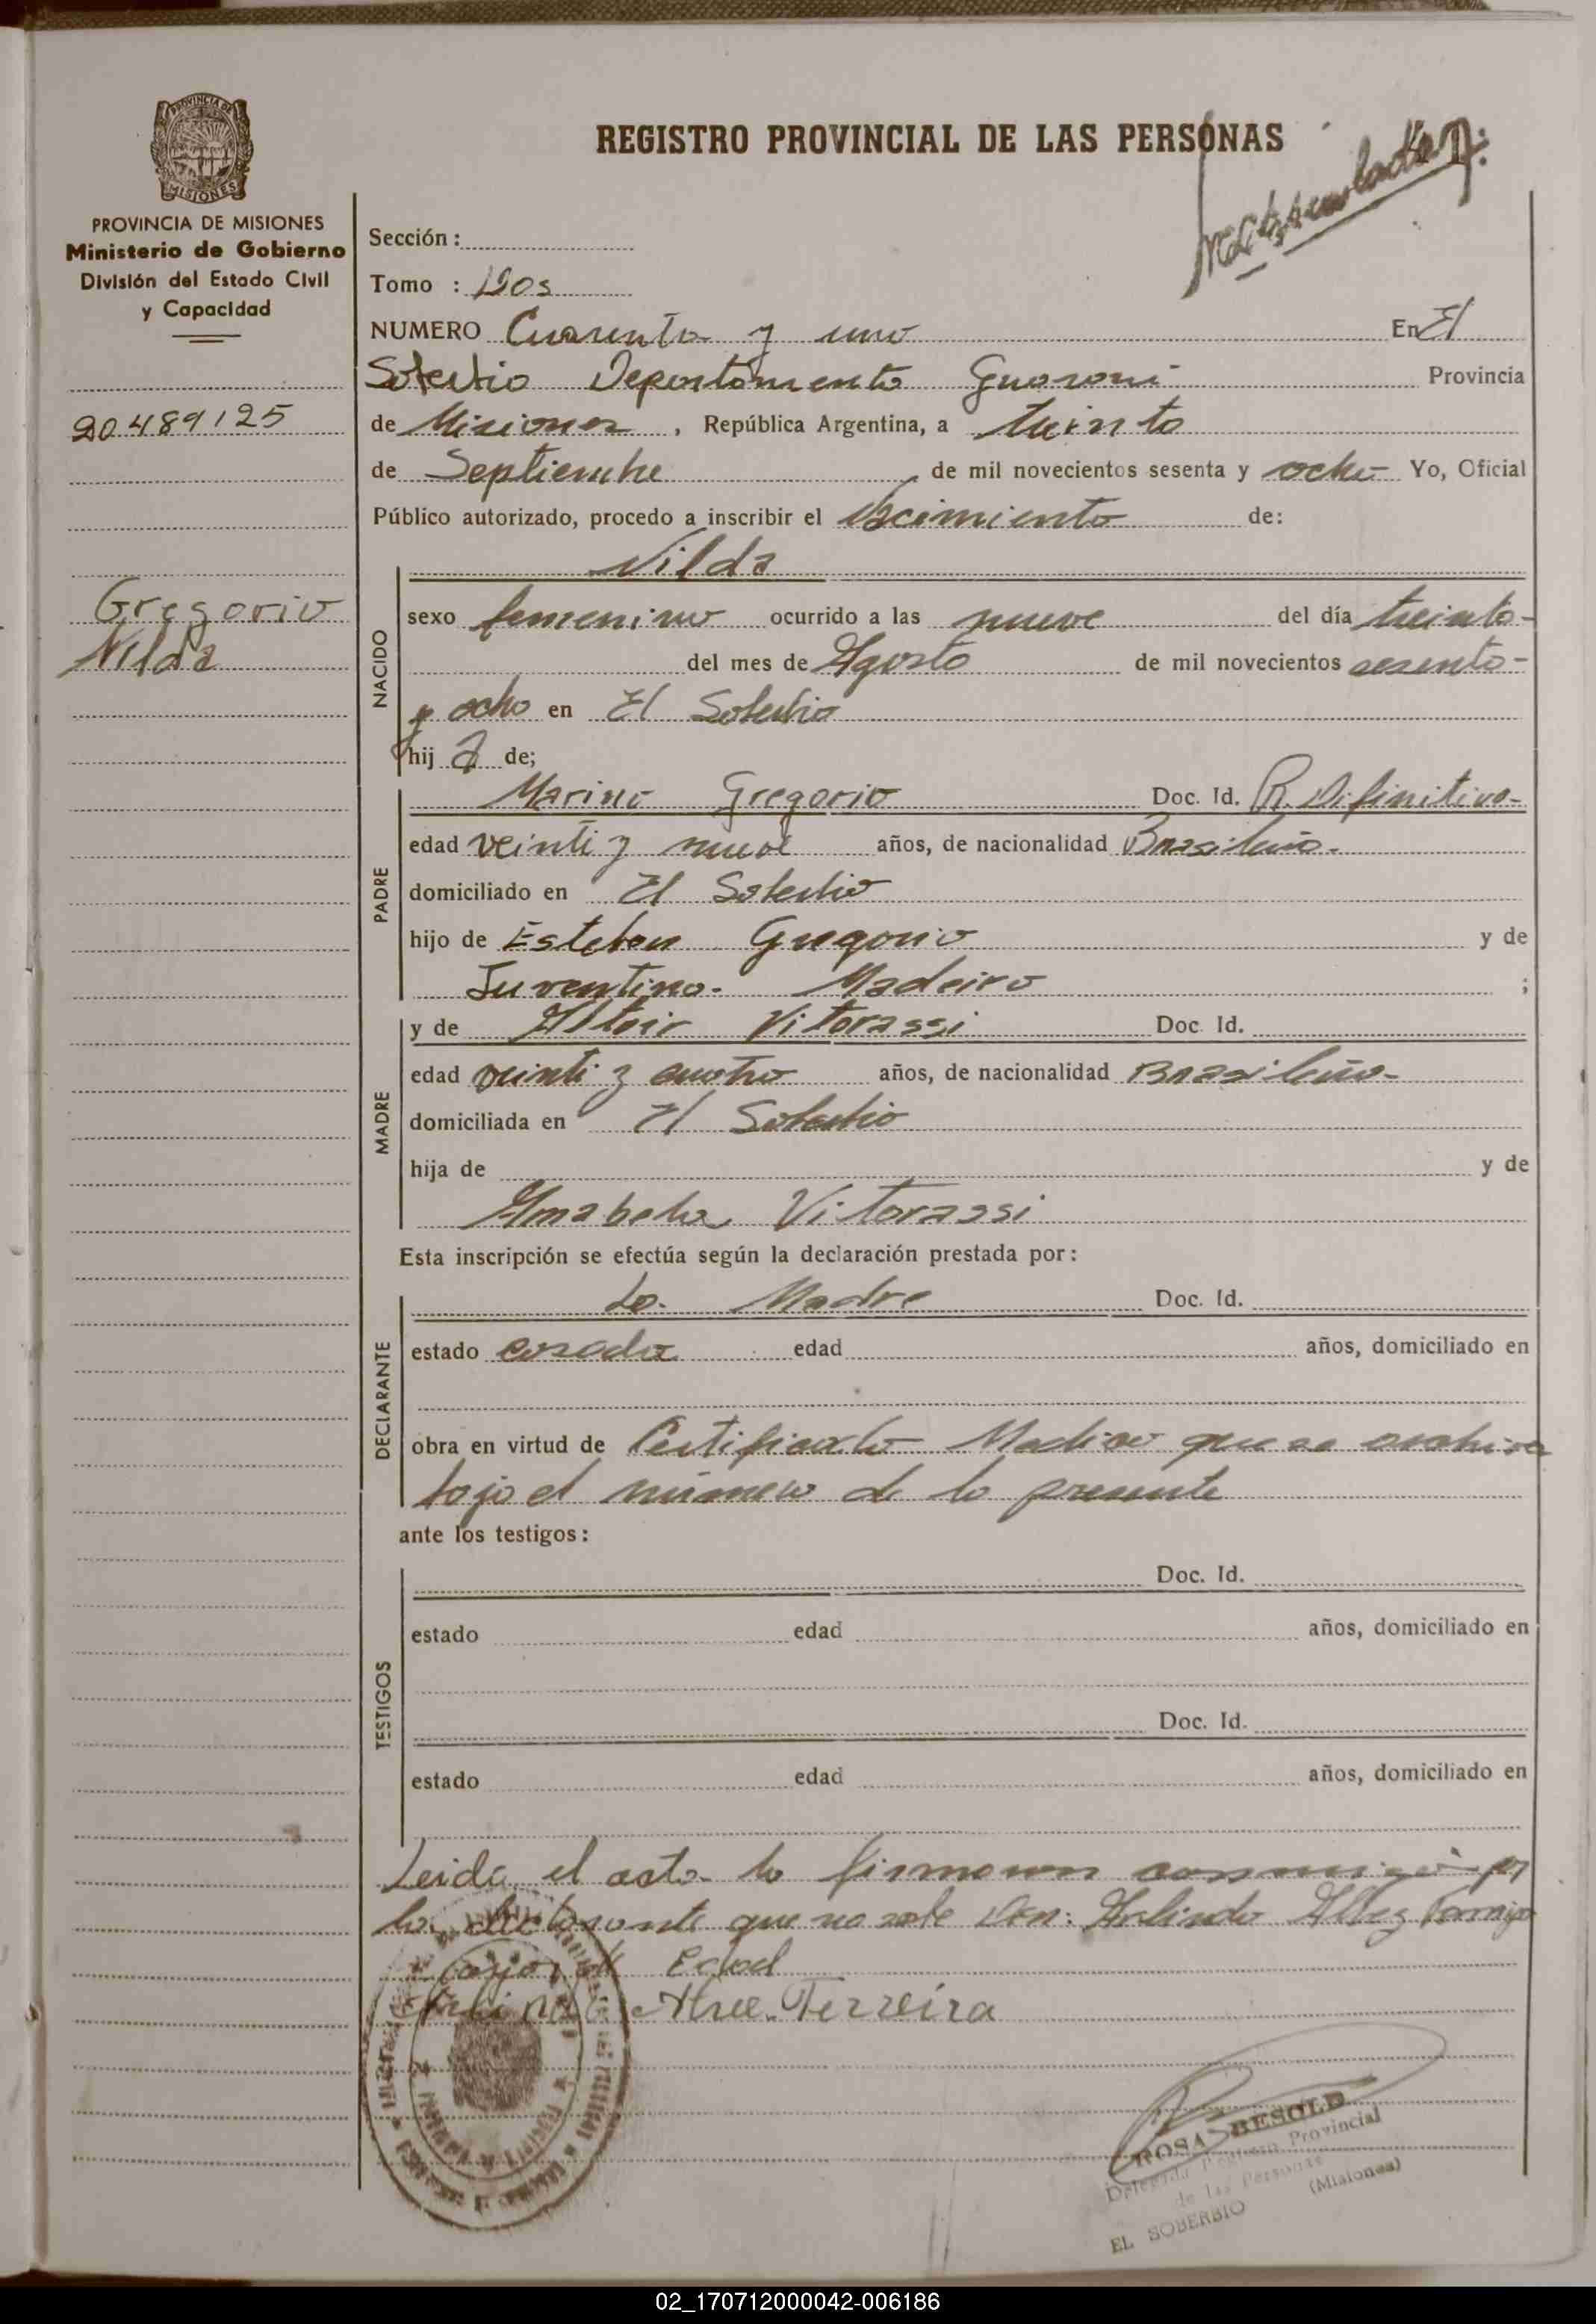 REGISTRO PROVINCIAL DE LAS PERSONAS
PROVINCIA DE
MISIONES
PROVINCIA DE MISIONES
Ministerio de Gobierno
División del Estado Civil
y Capacidad
20489125
Gregorio
Nilda
Sección :
Tomo : Dos
NUMERO Cuarenta y uno En El
Soberbio Departamento Guarani Provincia
de Misiones , República Argentina, a treinta
de Septiembre de mil novecientos sesenta y ocho Yo, Oficial
Público autorizado, procedo a inscribir el Nacimiento de:
Nilda
NACIDO
sexo femenino ocurrido a las nueve del día treinta-
del mes de Agosto de mil novecientos sesenta-
y ocho en El Soberbio
hij a de;
PADRE
Marino Gregorio Doc. Id. R. Difinitiva-
edad veinti y nueve años, de nacionalidad Brasileño-
domiciliado en El Soberbio
hijo de Esteban Gregorio y de
Juventina- Madeiro ;
MADRE
y de Altair Vitorassi Doc. Id.
edad veinti y cuatro años, de nacionalidad Brasileña-
domiciliada en El Soberbio
hija de y de
Amabela Vitorassi
Esta inscripción se efectúa según la declaración prestada por:
DECLARANTE
La Madre Doc. Id.
estado casada edad años, domiciliado en
obra en virtud de Certificado Medico que se archiva
bajo el número de la presente
ante los testigos:
TESTIGOS
Doc. Id.
estado edad años, domiciliado en
Doc. Id.
estado edad años, domiciliado en
Leida el acta la firmaron conmigo por
la declarante que no sabe Don:
mayor de Edad
Ferreira
ROSA BESOLD
Delegada Registro Provincial
de las Personas
EL SOBERBIO (Misiones)
02_170712000042-006186